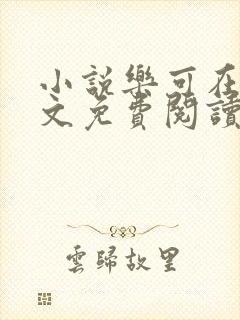 小説樂可在
文免費閱讀
雲歸故里